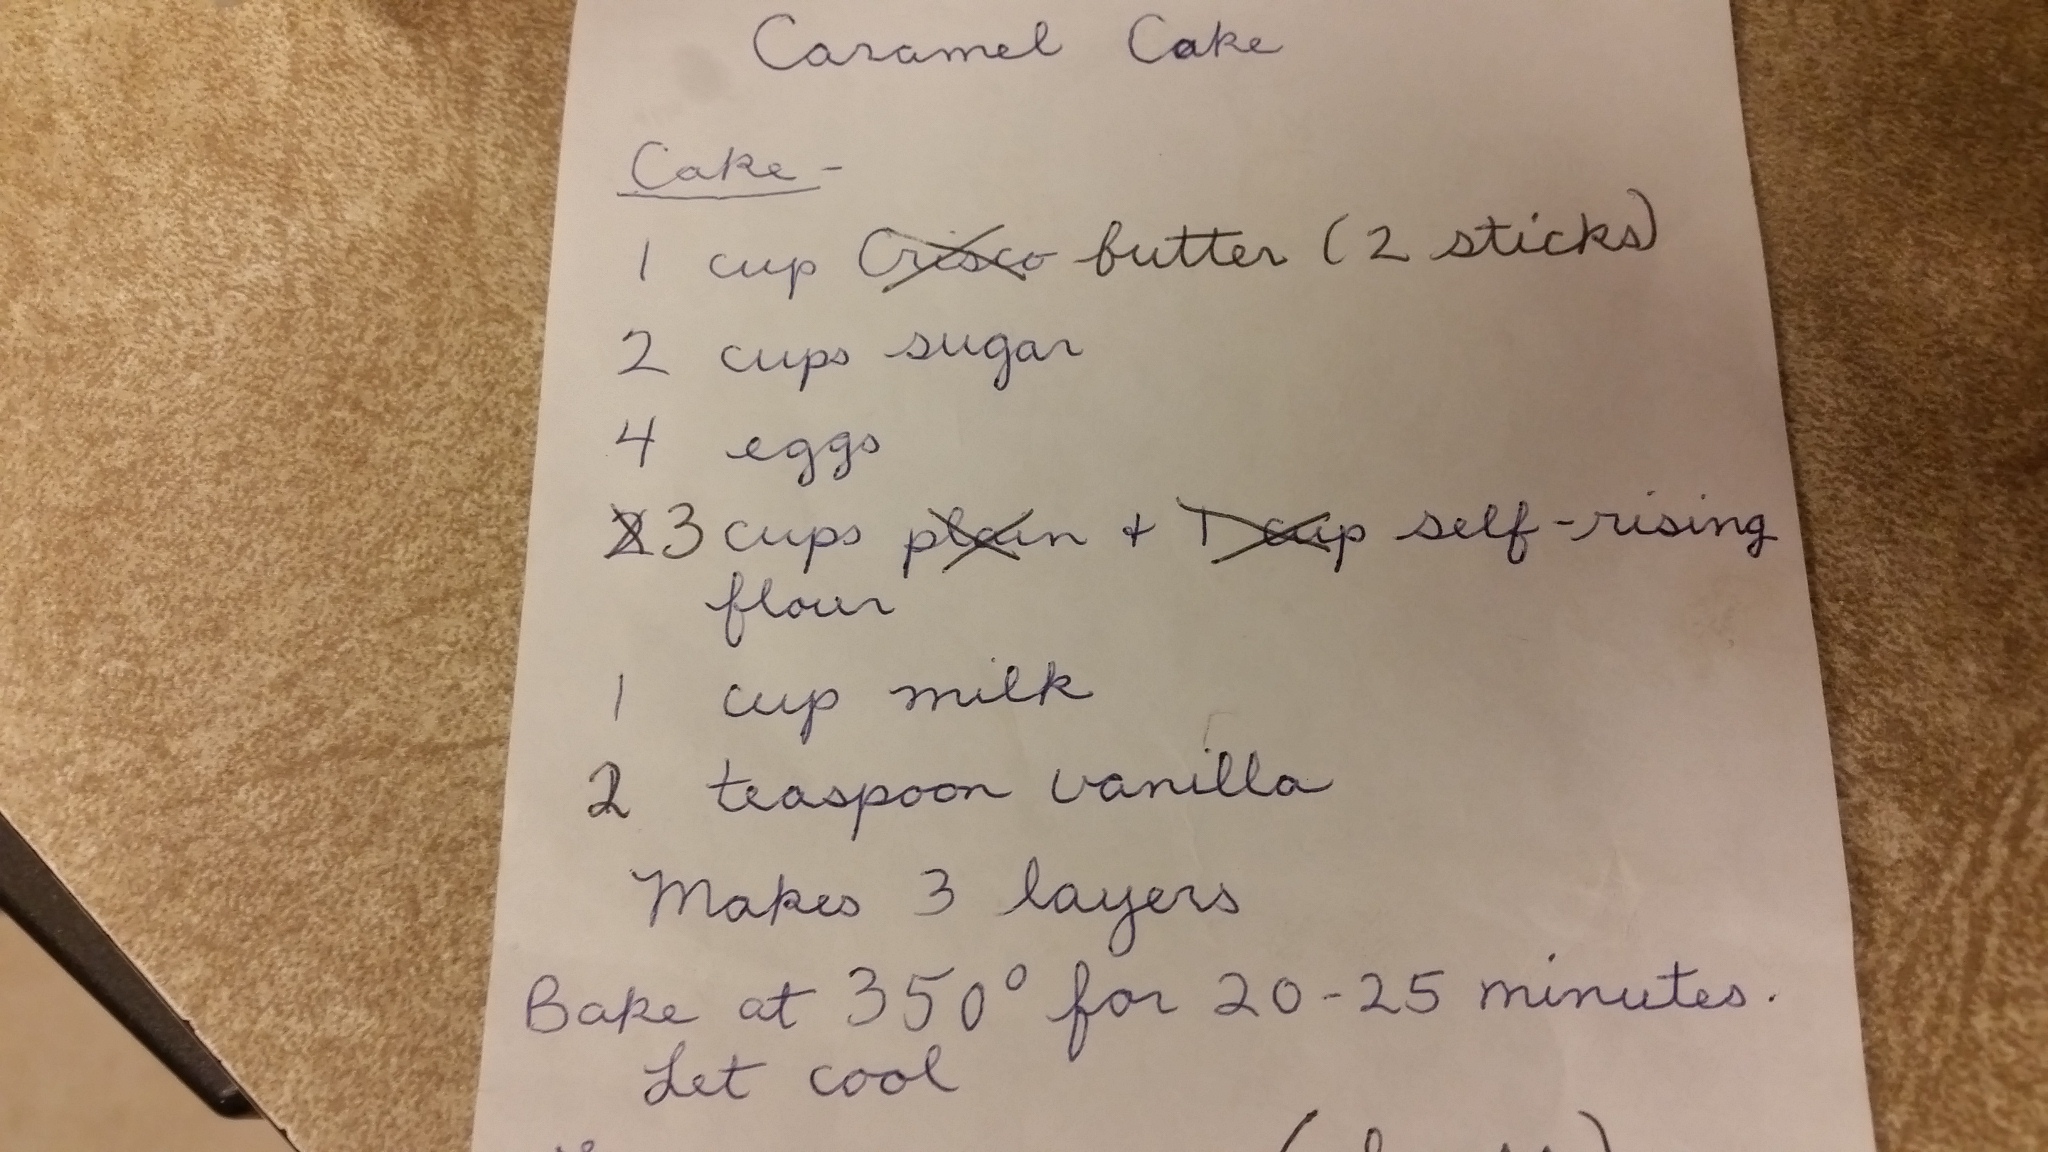 Caramel Cake
Cake -
1 cup Crisco butter (2 sticks)
2 cups sugar
4 eggs
2 3 cups plain + 1 cup self-rising
flour
1 cup milk
2 teaspoon vanilla
Makes 3 layers
Bake at 350° for 20-25 minutes.
Let cool